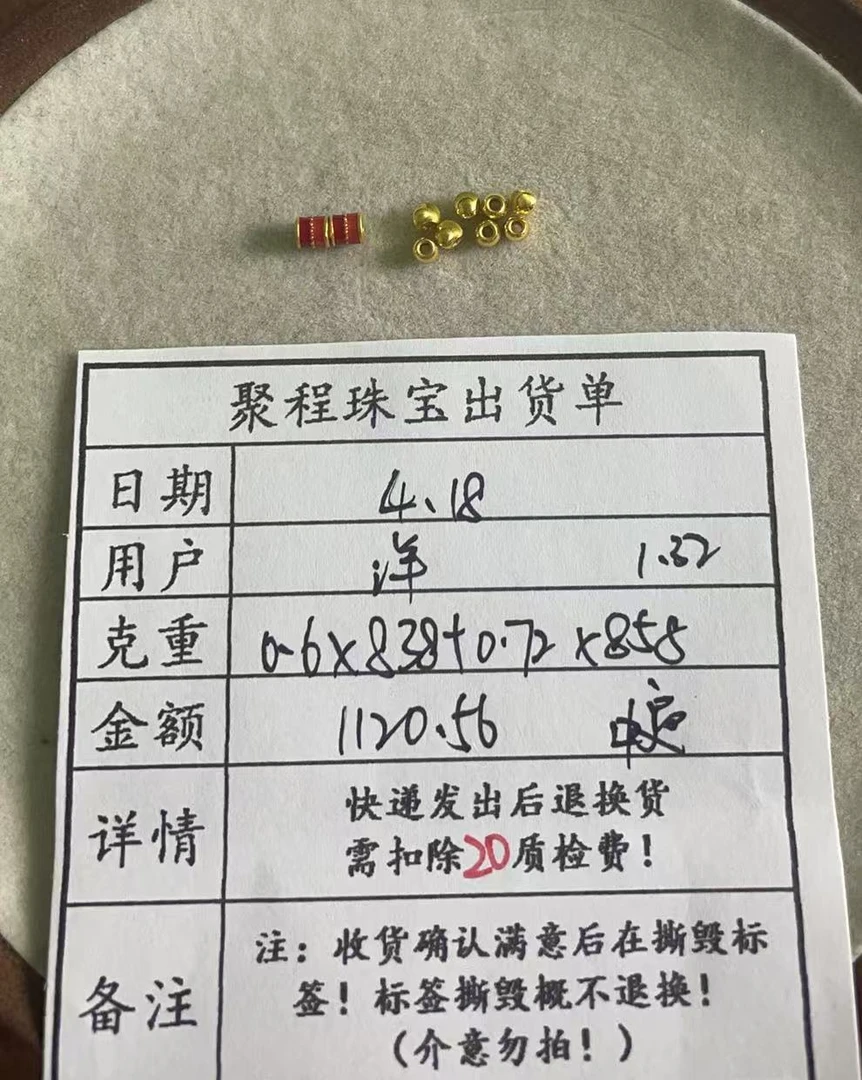 聚程珠宝出货单
日期 4.18
用户 洋 1.32
克重 0.6×838+0.72×858
金额 1120.56
详情 快递发出后退换货
需扣除20质检费!
备注 注:收货确认满意后在撕毁标
签!标签撕毁概不退换!
(介意勿拍!)